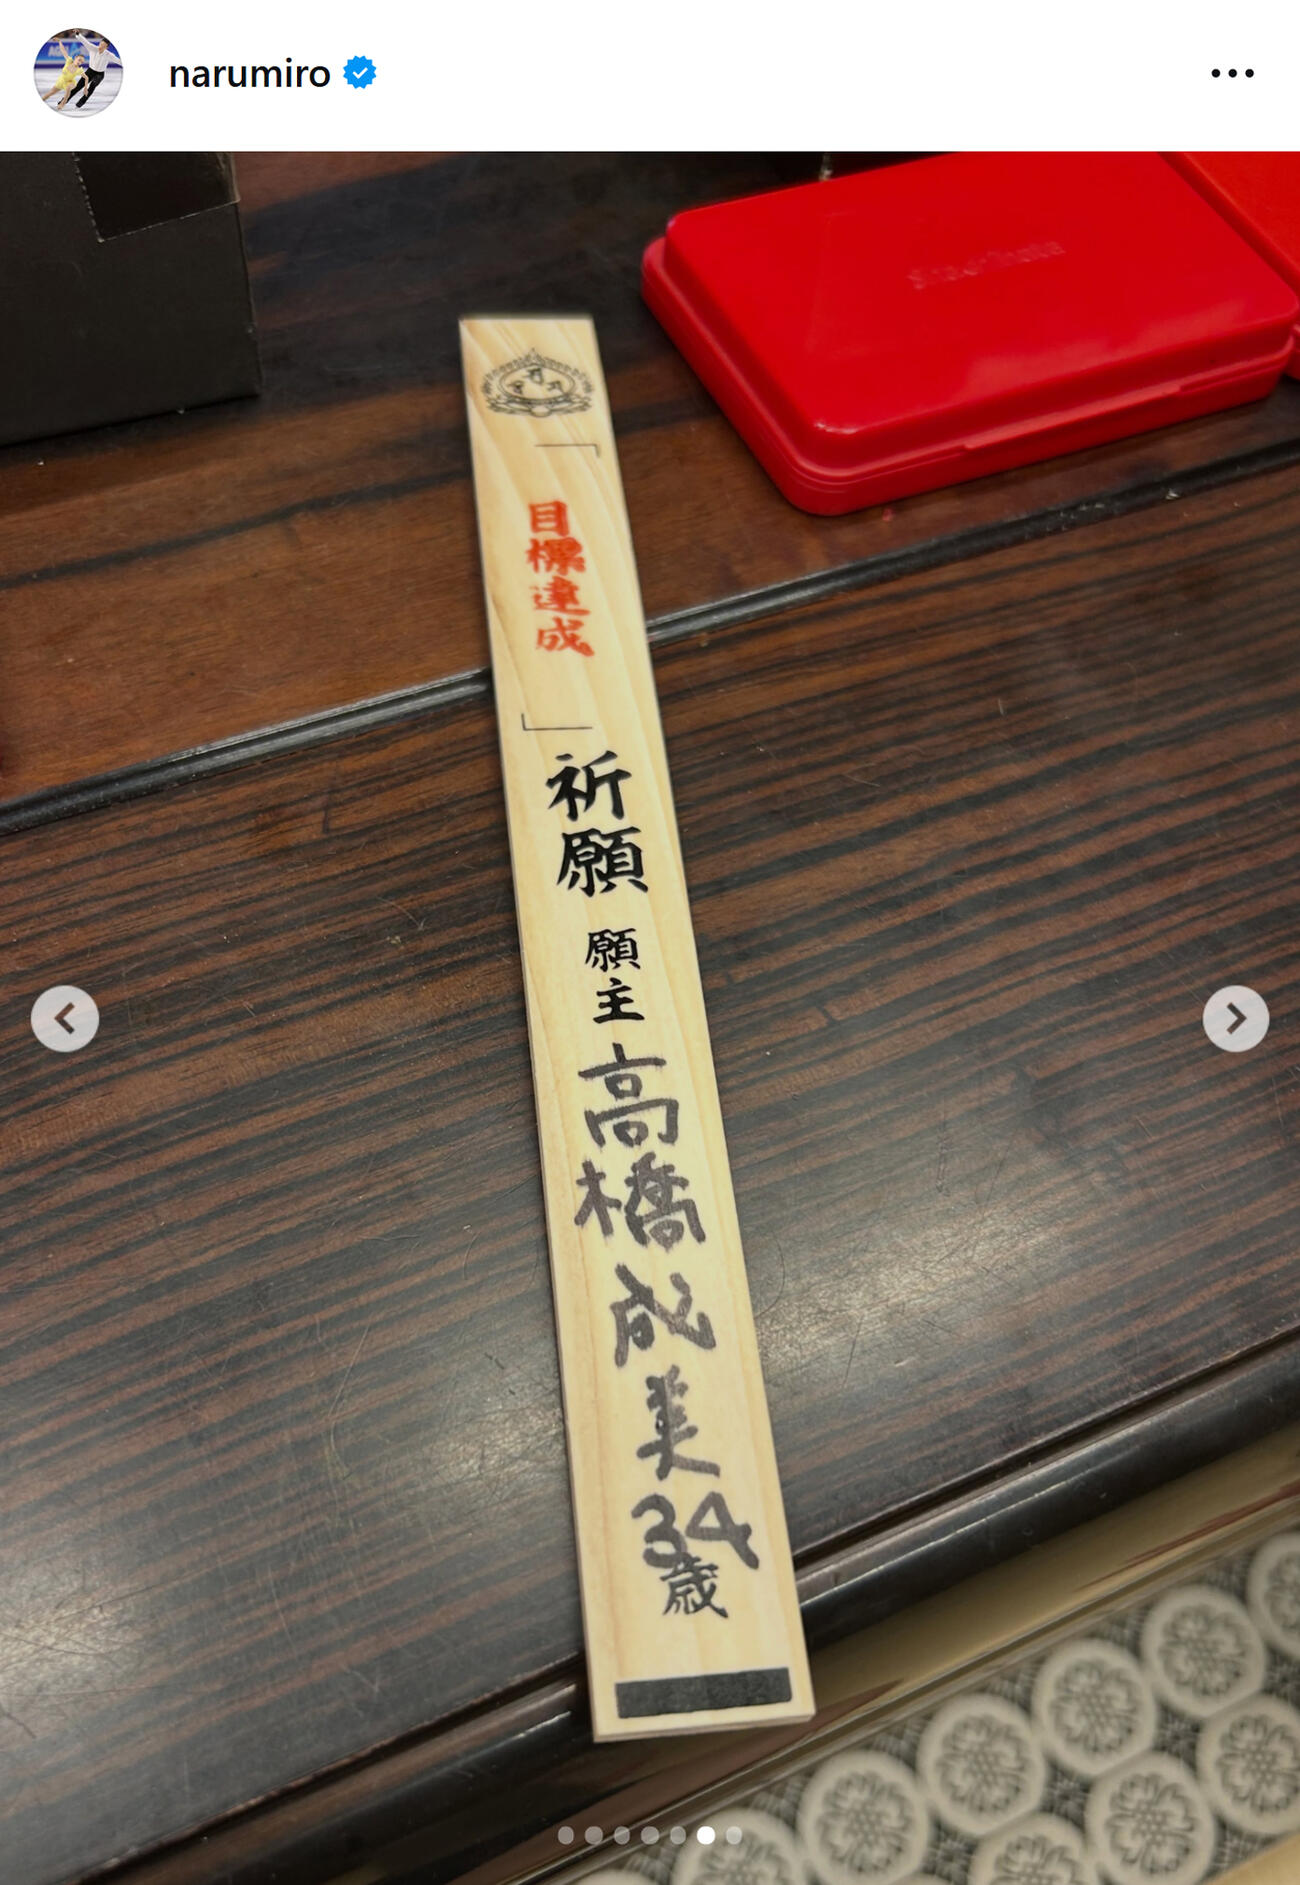 narumiro
「目標達成」祈願
願主
高橋成美
34歳